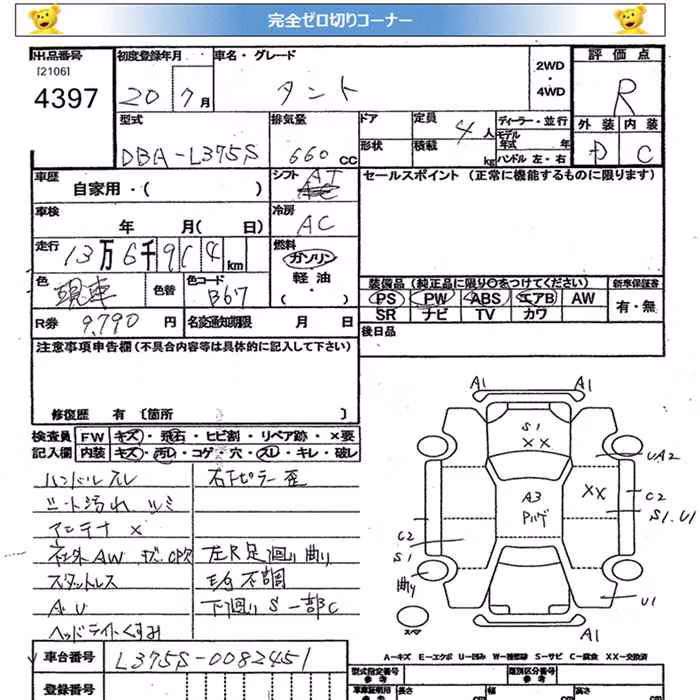 完全ゼロ切りコーナー
出品番号
[2106]
4397
初度登録年月
20 7月
車名・グレード
タント
2WD
・
4WD
評価点
R
外装 内装
D C
型式
DBA-L375S
排気量
660 CC
ドア
形状
定員
4人
積載
kg
ディーラー・並行
モデル
年式 年
ハンドル 左・右
車歴
自家用・( )
シフト
AT
冷房
AC
車検
年 月( 日)
走行
13万6千914km
燃料
ガソリン
軽油
・( ・ )
色
現車
色替
色コード
B67
R券 9,790円
名変通知期限 月 日
セールスポイント(正常に機能するものに限ります)
装備品(純正品に限り○をつけてください)
新車保証書
PS PW ABS エアB AW
有・無
SR ナビ TV カワ
後日品
注意事項申告欄(不具合内容等は具体的に記入して下さい)
修復歴 有〔箇所 〕
検査員
記入欄
FW キズ・飛石・ヒビ割・リペア跡・×要
内装 キズ・汚レ・コゲ・穴・スレ・キレ・破レ
ハンドルスレ
シート汚れ シミ
アンテナ ×
社外AW キズ
スタットレス
AU
ヘッドライトくすみ
右Fピラー歪
左R足廻り曲り
下廻りS一部C
車台番号 L375S-0082451
登録番号
A1 A1
S1
XX
UA2
XX
C2
S1.U1
A3
Pハゲ
C2
S1
曲り
U1
スペア
A1
A-キズ E-エクボ U-凹み W-補修跡 S-サビ C-腐食 XX-交換済
型式指定番号
参考
類別区分番号
参考
車庫証明用
長さ
幅
高さ